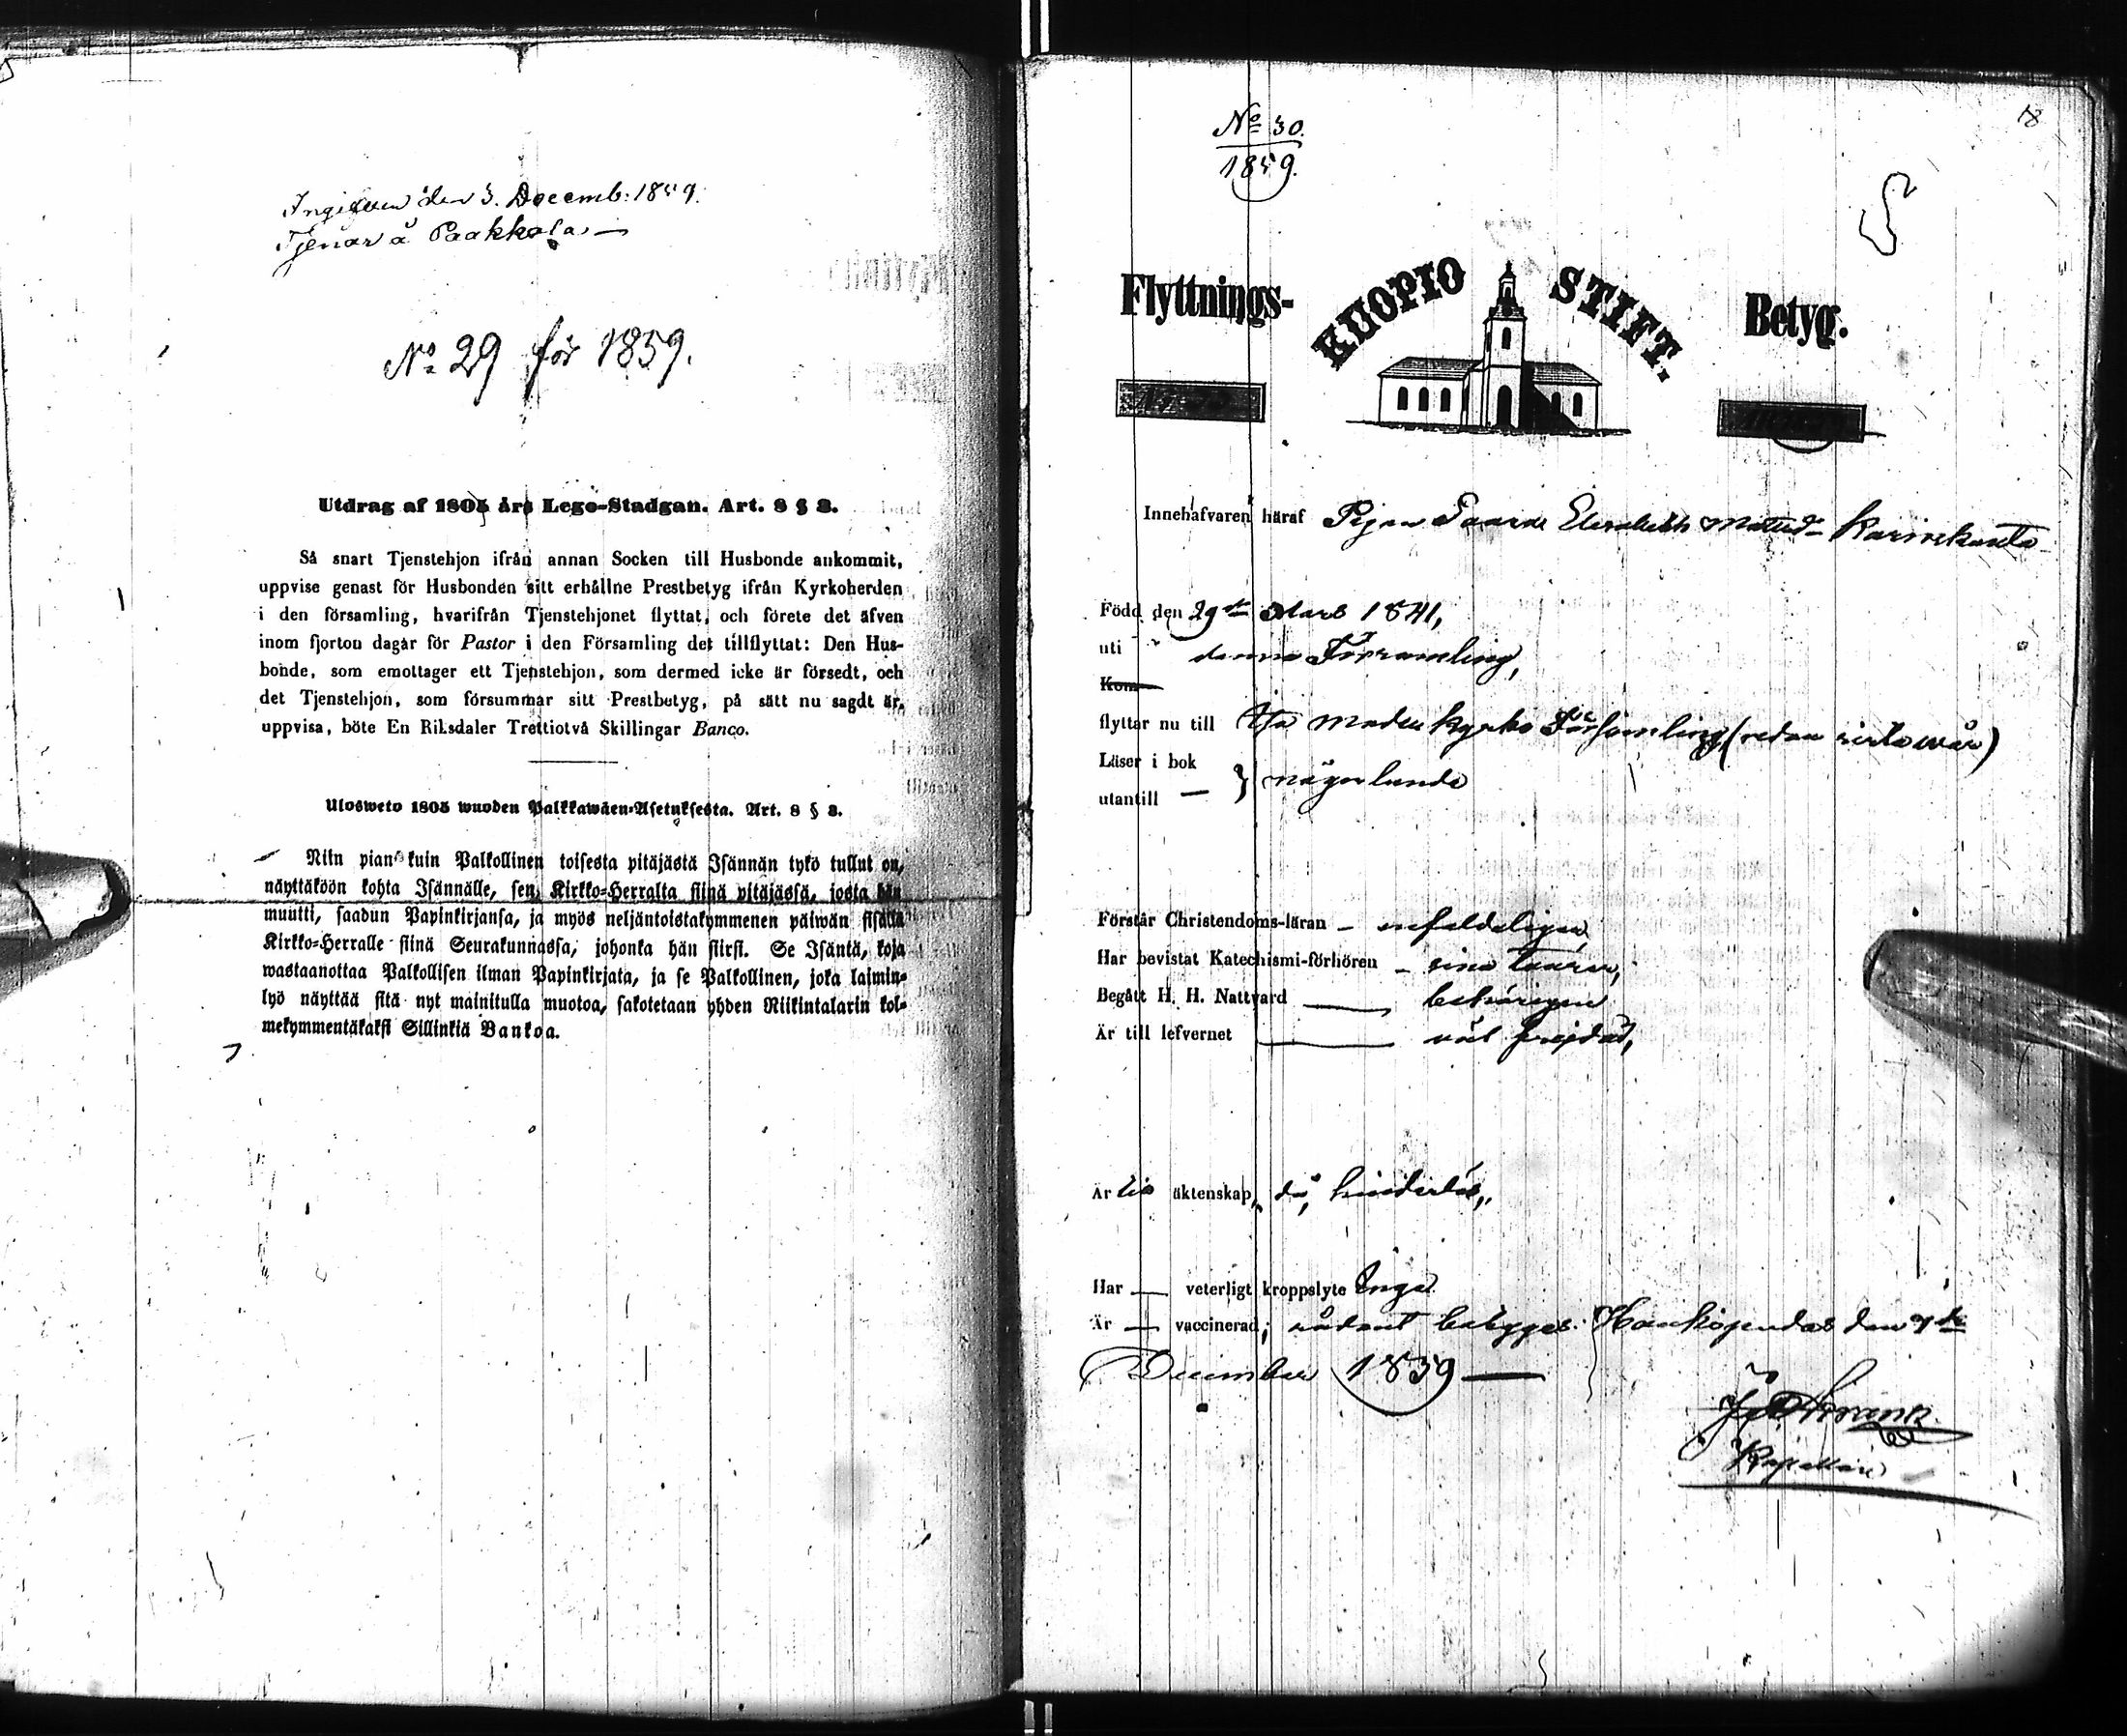 Ingifven den 3. Decemb: 1859.
Tjenar å Paakkola
No 29 för 1859.
Utdrag af 1805 års Lego-Stadgan. Art. 8 § 3.
Så snart Tjenstehjon ifrån annan Socken till Husbonde ankommit,
uppvise genast för Husbonden sitt erhållne Prestbetyg ifrån Kyrkoherden
i den församling, hvarifrån Tjenstehjonet flyttat, och förete det äfven
inom fjorton dagar för Pastor i den Församling det tillflyttat: Den Hus-
bonde, som emottager ett Tjenstehjon, som dermed icke är försedt, och
det Tjenstehjon, som försummar sitt Prestbetyg, på sätt nu sagdt är,
uppvisa, böte En Riksdaler Trettiotvå Skillingar Banco.
Ulosweto 1805 wuoden Palkkawäen-Asetuksesta. Art. 8 § 3.
Niin pian kuin Palkollinen toisesta pitäjästä Isännän tykö tullut on,
näyttäköön kohta Isännälle, sen Kirkko-Herralta siinä pitäjässä, josta hän
muutti, saadun Papinkirjansa, ja myös neljäntoistakymmenen päiwän sisällä
Kirkko-Herralle siinä Seurakunnassa, johonka hän siirsi. Se Isäntä, koja
wastaanottaa Palkollisen ilman Papinkirjata, ja se Palkollinen, joka laimin-
lyö näyttää sitä nyt mainitulla muotoa, sakotetaan yhden Riikintalarin kol-
mekymmentäkaksi Sillinkiä Bankoa.
18
No 30.
1859.
Flyttnings-
KUOPIO STIFT.
Betyg.
Innehafvaren häraf Pigan Elisabeth Matsd- Karinkanta
Född den 29de Mars 1841,
uti denna Församling,
Kom
flyttar nu till moderkyrko Församling (redan sista vår)
Läser i bok
utantill — } någorlunda
Förstår Christendoms-läran - enfaldeligen,
Har bevistat Katechismi-förhören - sina
Begått H. H. Nattvard — behörigen
Är till lefvernet — väl frejdad,
Är till äktenskap, hinderlös,
Har — veterligt kroppslyte Inga
Är — vaccinerad; sådant betygas: Haukipudas den
December 1859 —
Kapellan